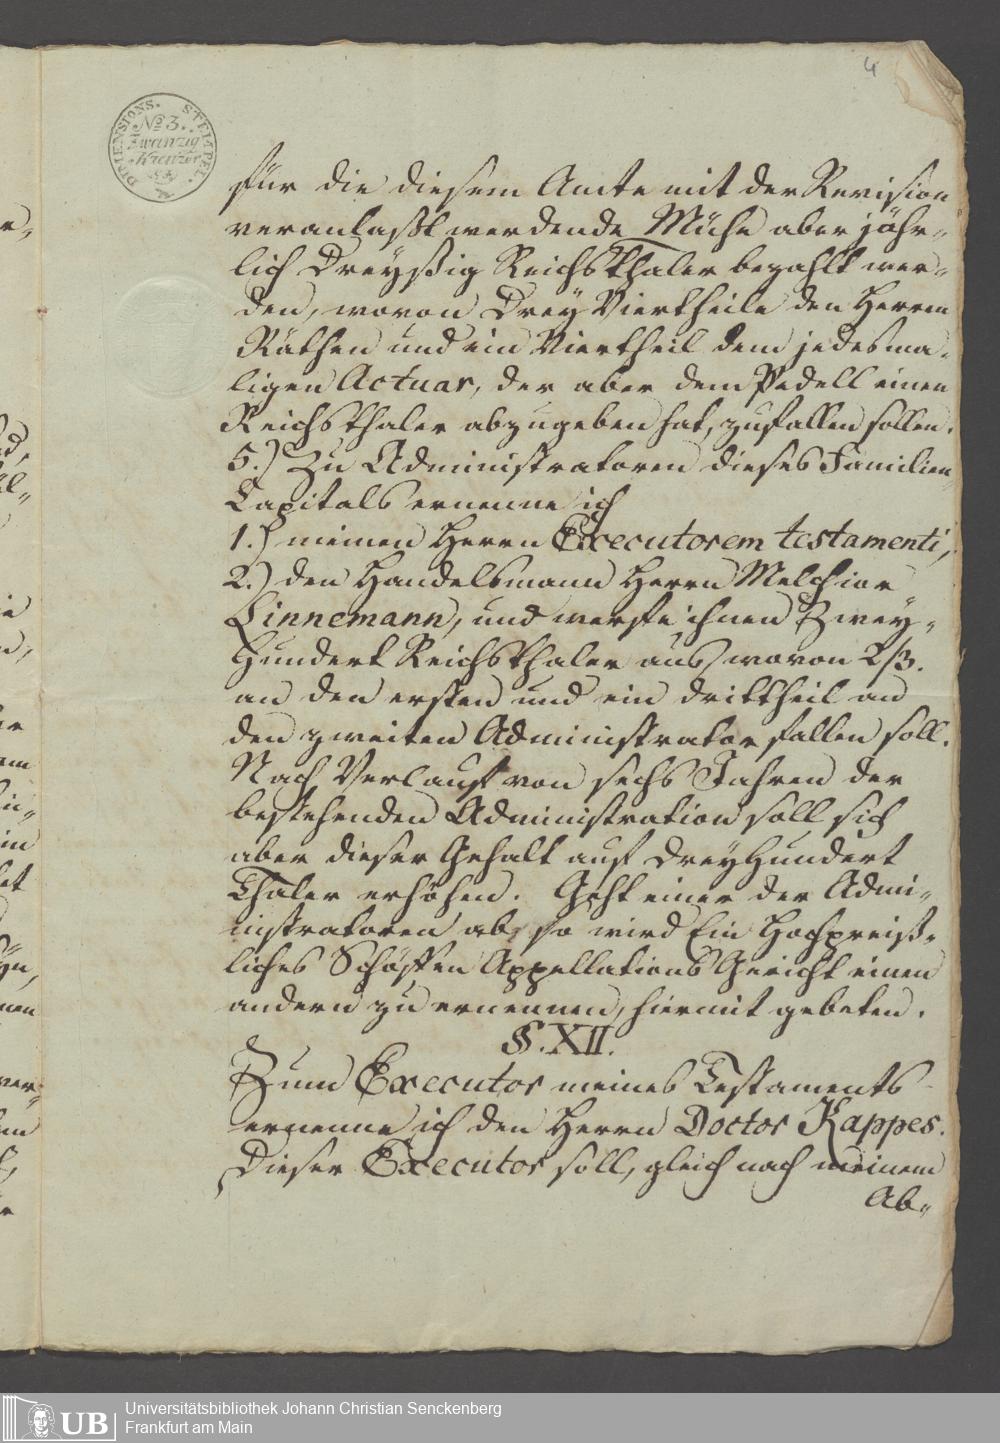 4
DIMENSIONS. STEMPEL.
No 3.
Zwanzig
Kreuzer
für die diesem Amte mit der Revision
veranlaßt werdende Mühe aber jähr-
lich Dreyßig Reichsthaler bezahlt wer-
den, wovon Drey Viertheile den Herrn
Räthen und ein Viertheil dem jedesma-
ligen Actuar, der aber dem Pedell einen
Reichsthaler abzugeben hat, zufallen sollen.
5.) Zu Administratoren dieses Familien
Capitals ernenne ich
1.) meinen Herrn Executorem testamenti,
2.) den Handelsmann Herrn Melchior
Linnemann, und werfe ihnen Zwey-
Hundert Reichsthaler aus, wovon 2/3.
an den ersten und ein drittheil an
den zweiten Administrator fallen soll.
Nach Verlauf von sechs Jahren der
bestehenden Administration soll sich
aber dieser Gehalt auf DreyHundert
Thaler erhöhen. Geht einer der Admi-
nistratoren ab, so wird Ein Hochpreiß-
liches Schöffen Appellations Gericht einen
andern zu ernennen, hiermit gebeten.
§. XII.
Zum Executor meines Testaments
ernenne ich den Herrn Doctor Kappes.
Dieser Executor soll, gleich nach meinem
Ab-
UB
Universitätsbibliothek Johann Christian Senckenberg
Frankfurt am Main